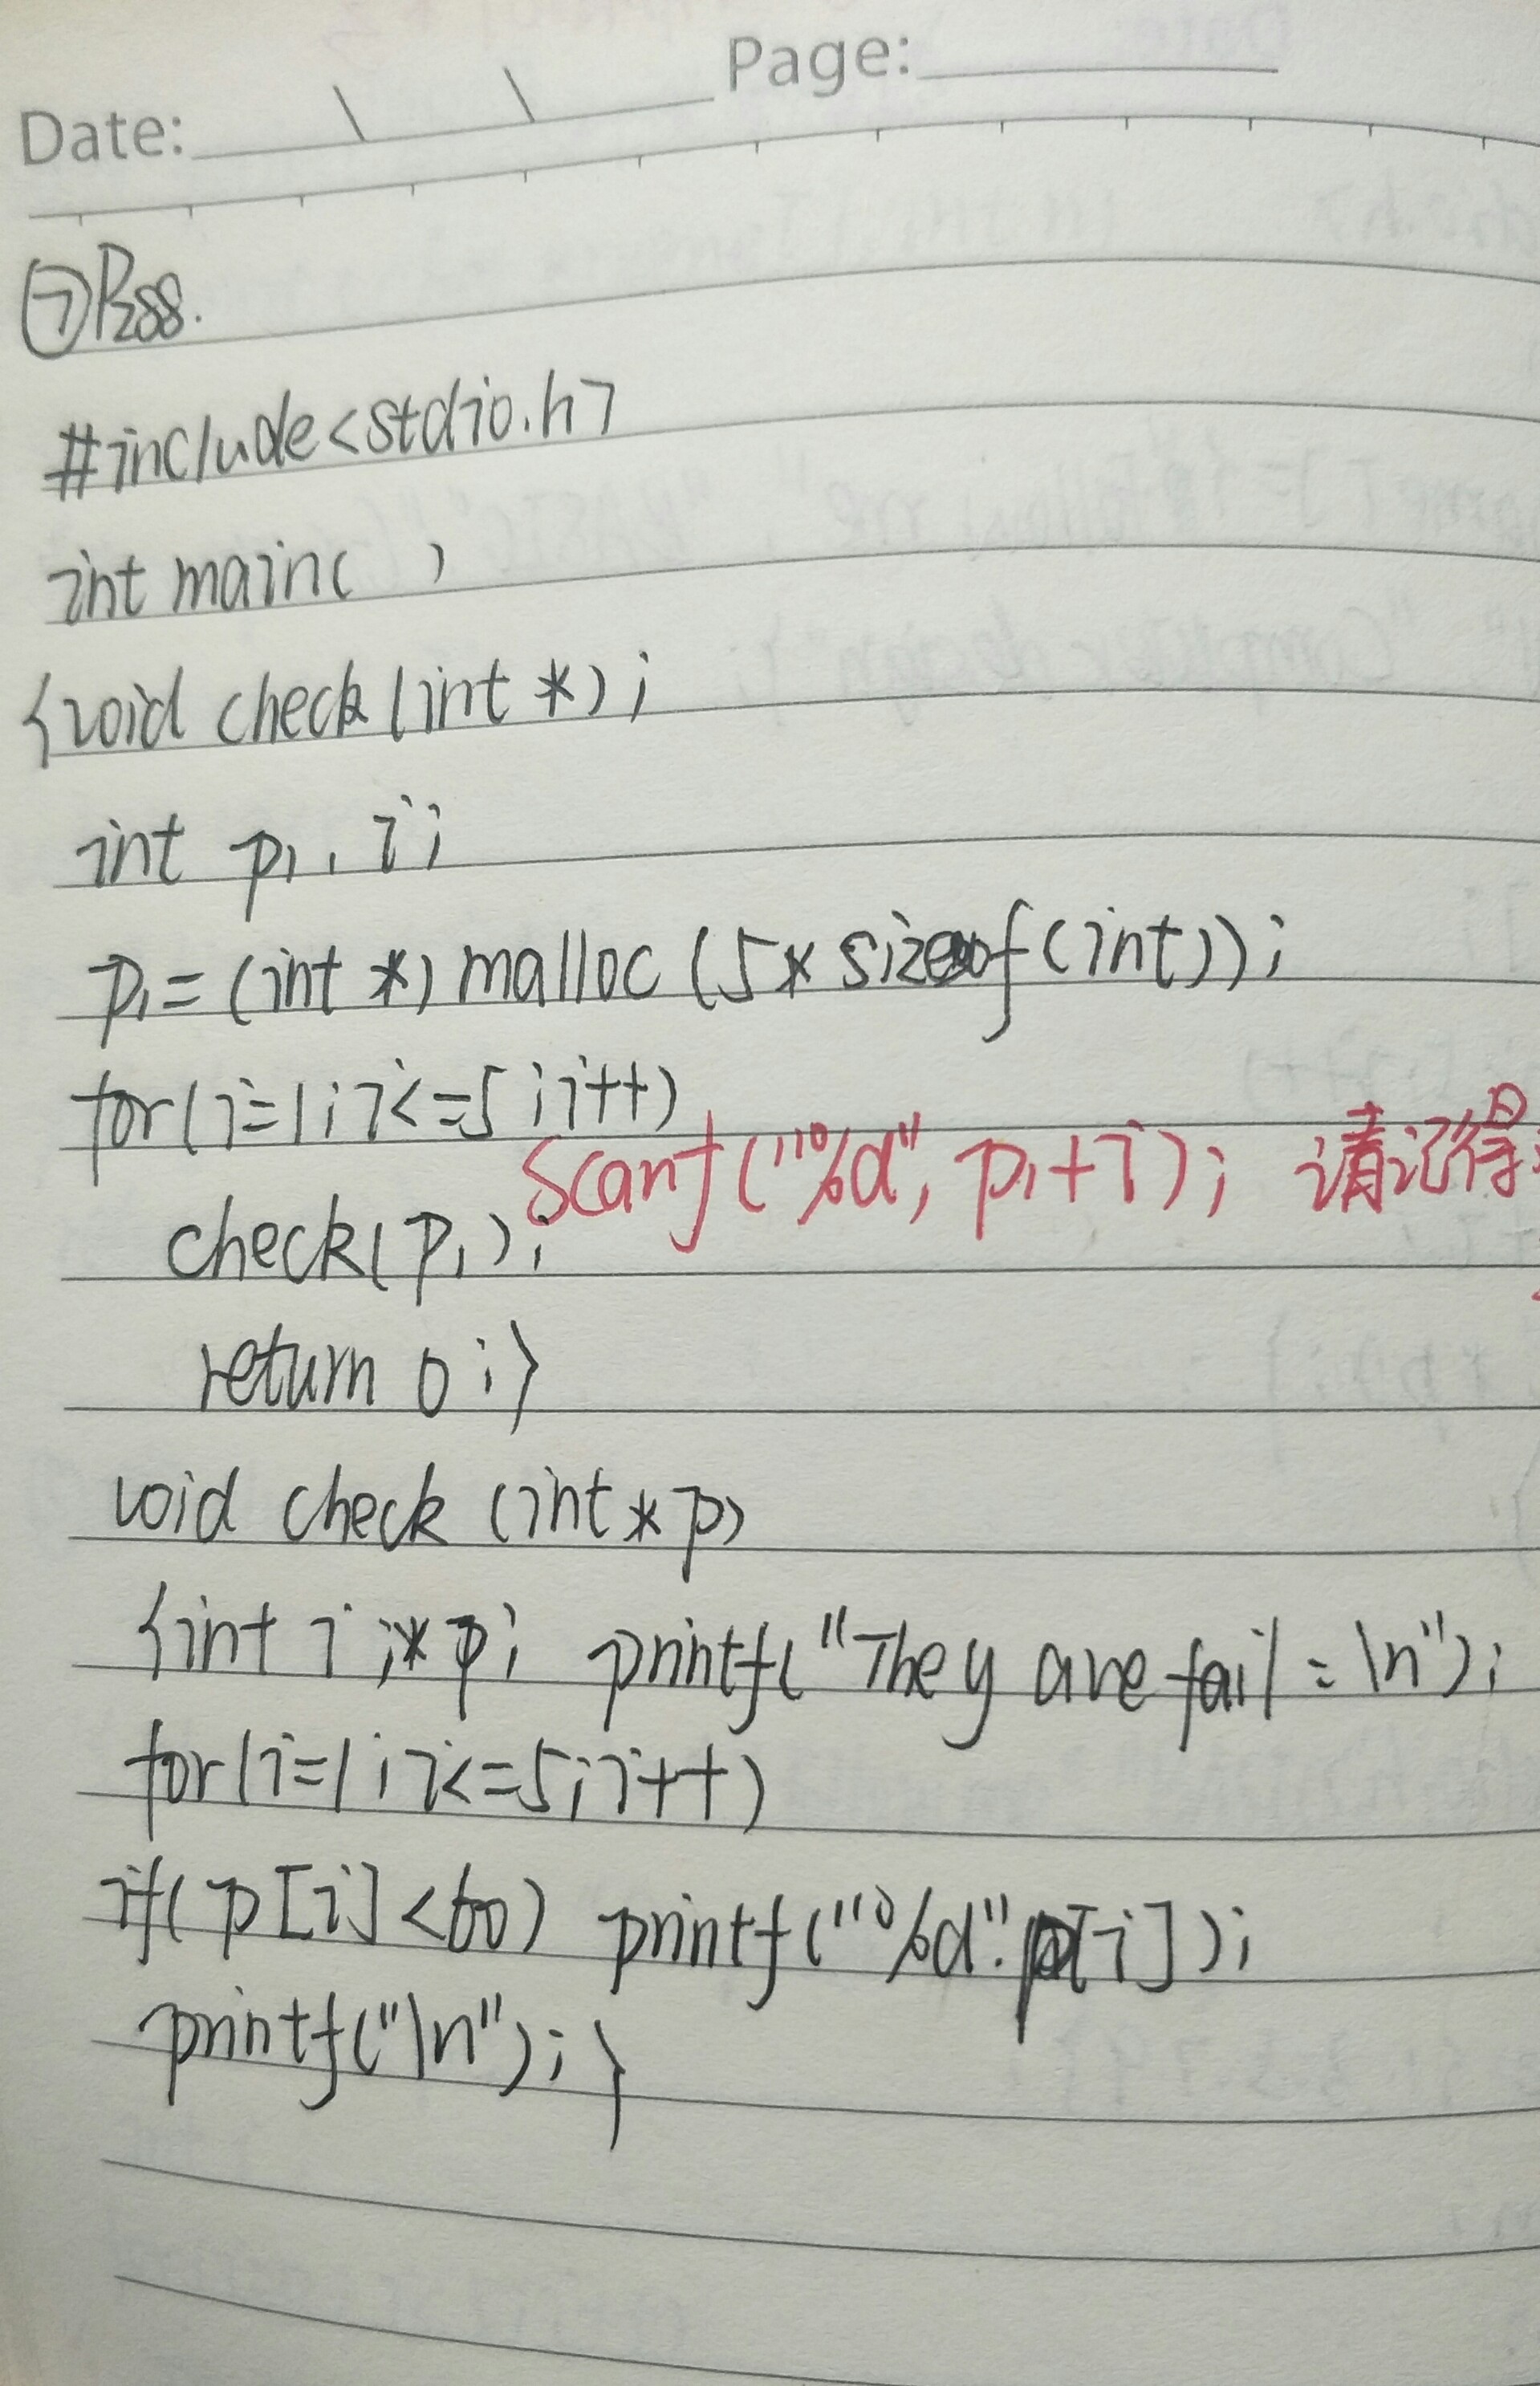 Date: Page:
⑦P288.
#include<stdio.h>
int main( )
{void check(int *);
int p1, i;
p1=(int *) malloc (5* sizeof(int));
for(i=1;i<=5;i++)
scanf("%d", p1+i); 请记得
check(p1);
return 0;}
void check (int* p)
{int i;*p; printf("They are fail:\n");
for(i=1;i<=5;i++)
if(p[i]<60) printf("%d".p[i]);
printf("\n");}